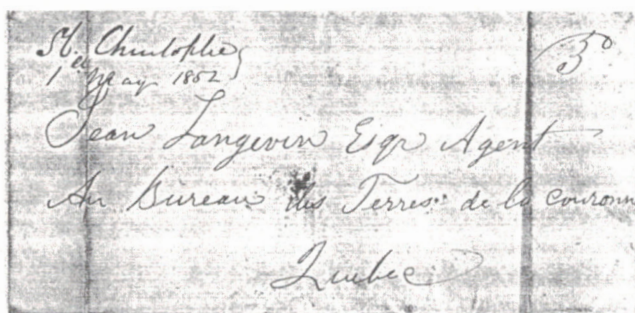 St. Christophe
1er May 1852
5
Jean Langevin Esqr Agent
Au Bureau des Terres de la couronn
Quebec